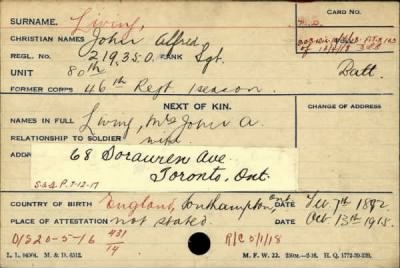 SURNAME. Living,
CARD NO.
CHRISTIAN NAMES John Alfred
REGL. NO. 219,350. RANK Sgt.
UNIT 80th Batt.
FORMER CORPS 46th Regt 1 season.
NEXT OF KIN.
CHANGE OF ADDRESS
NAMES IN FULL Living, Mrs John A.
RELATIONSHIP TO SOLDIER wife
68 Sorauren Ave
Toronto, Ont.
COUNTRY OF BIRTH England, Southampton, DATE Feb. 7th 1882
PLACE OF ATTESTATION not stated. DATE Oct 13th 1915.
O/S 20-5-16 431/14 R/C 5/1/18
L. L. M. & D. M. F. W. 22.